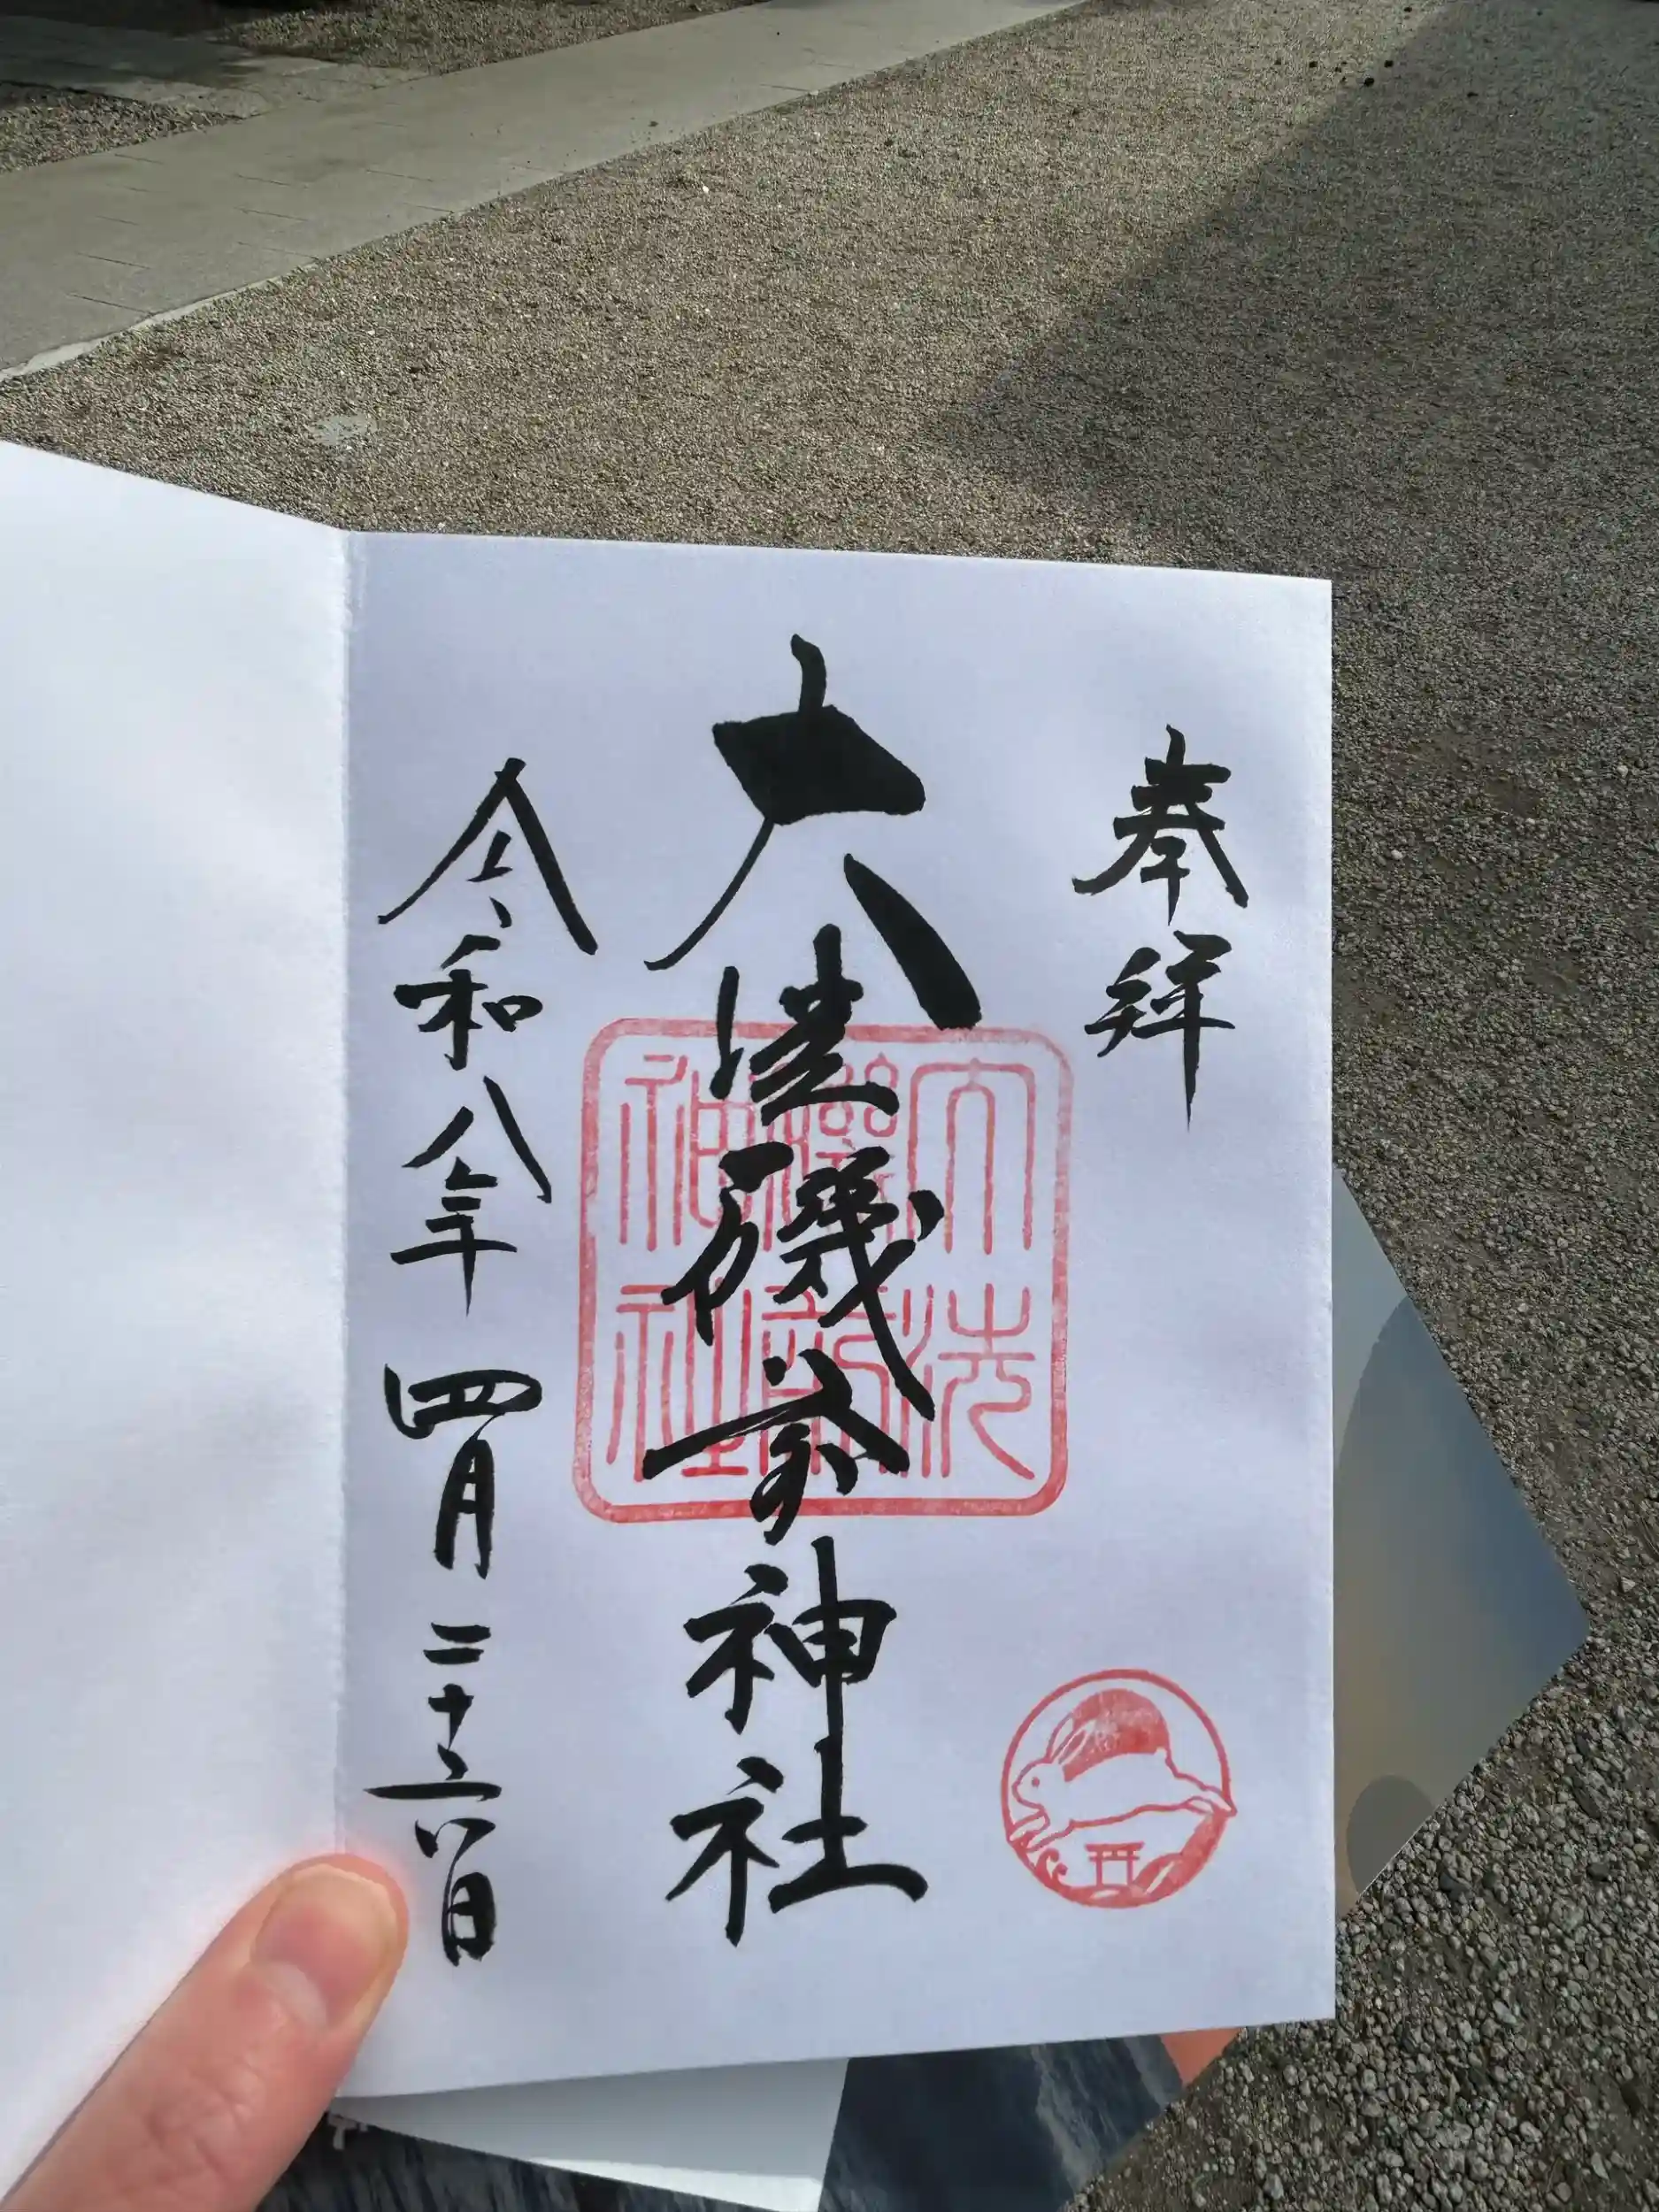 奉拝
大洗磯前神社
令和八年四月二十六日
大洗
磯前
神社